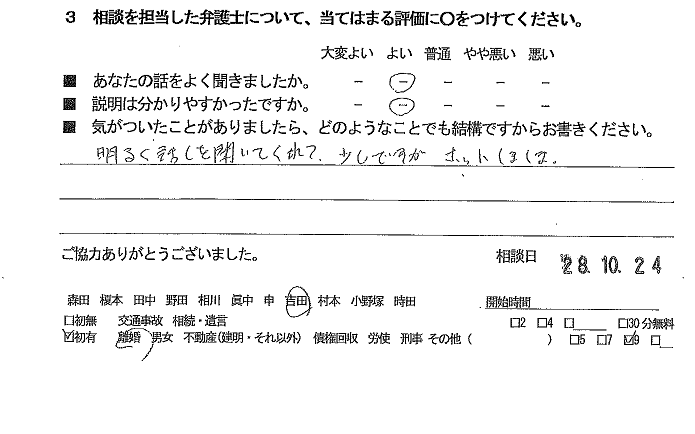 3 相談を担当した弁護士について、当てはまる評価に〇をつけてください。
大変よい よい 普通 やや悪い 悪い
■ あなたの話をよく聞きましたか。 － － － － －
■ 説明は分かりやすかったですか。 － － － － －
■ 気がついたことがありましたら、どのようなことでも結構ですからお書きください。
明るく話しを聞いてくれて、少しですが ホットしました。
ご協力ありがとうございました。 相談日 28.10.24
森田 榎本 田中 野田 相川 眞中 申 吉田 村本 小野塚 時田 開始時間
□初無 交通事故 相続・遺言 □2 □4 □ □30分無料
☑初有 離婚 男女 不動産(建明・それ以外) 債権回収 労使 刑事 その他 ( ) □5 □7 ☑9 □